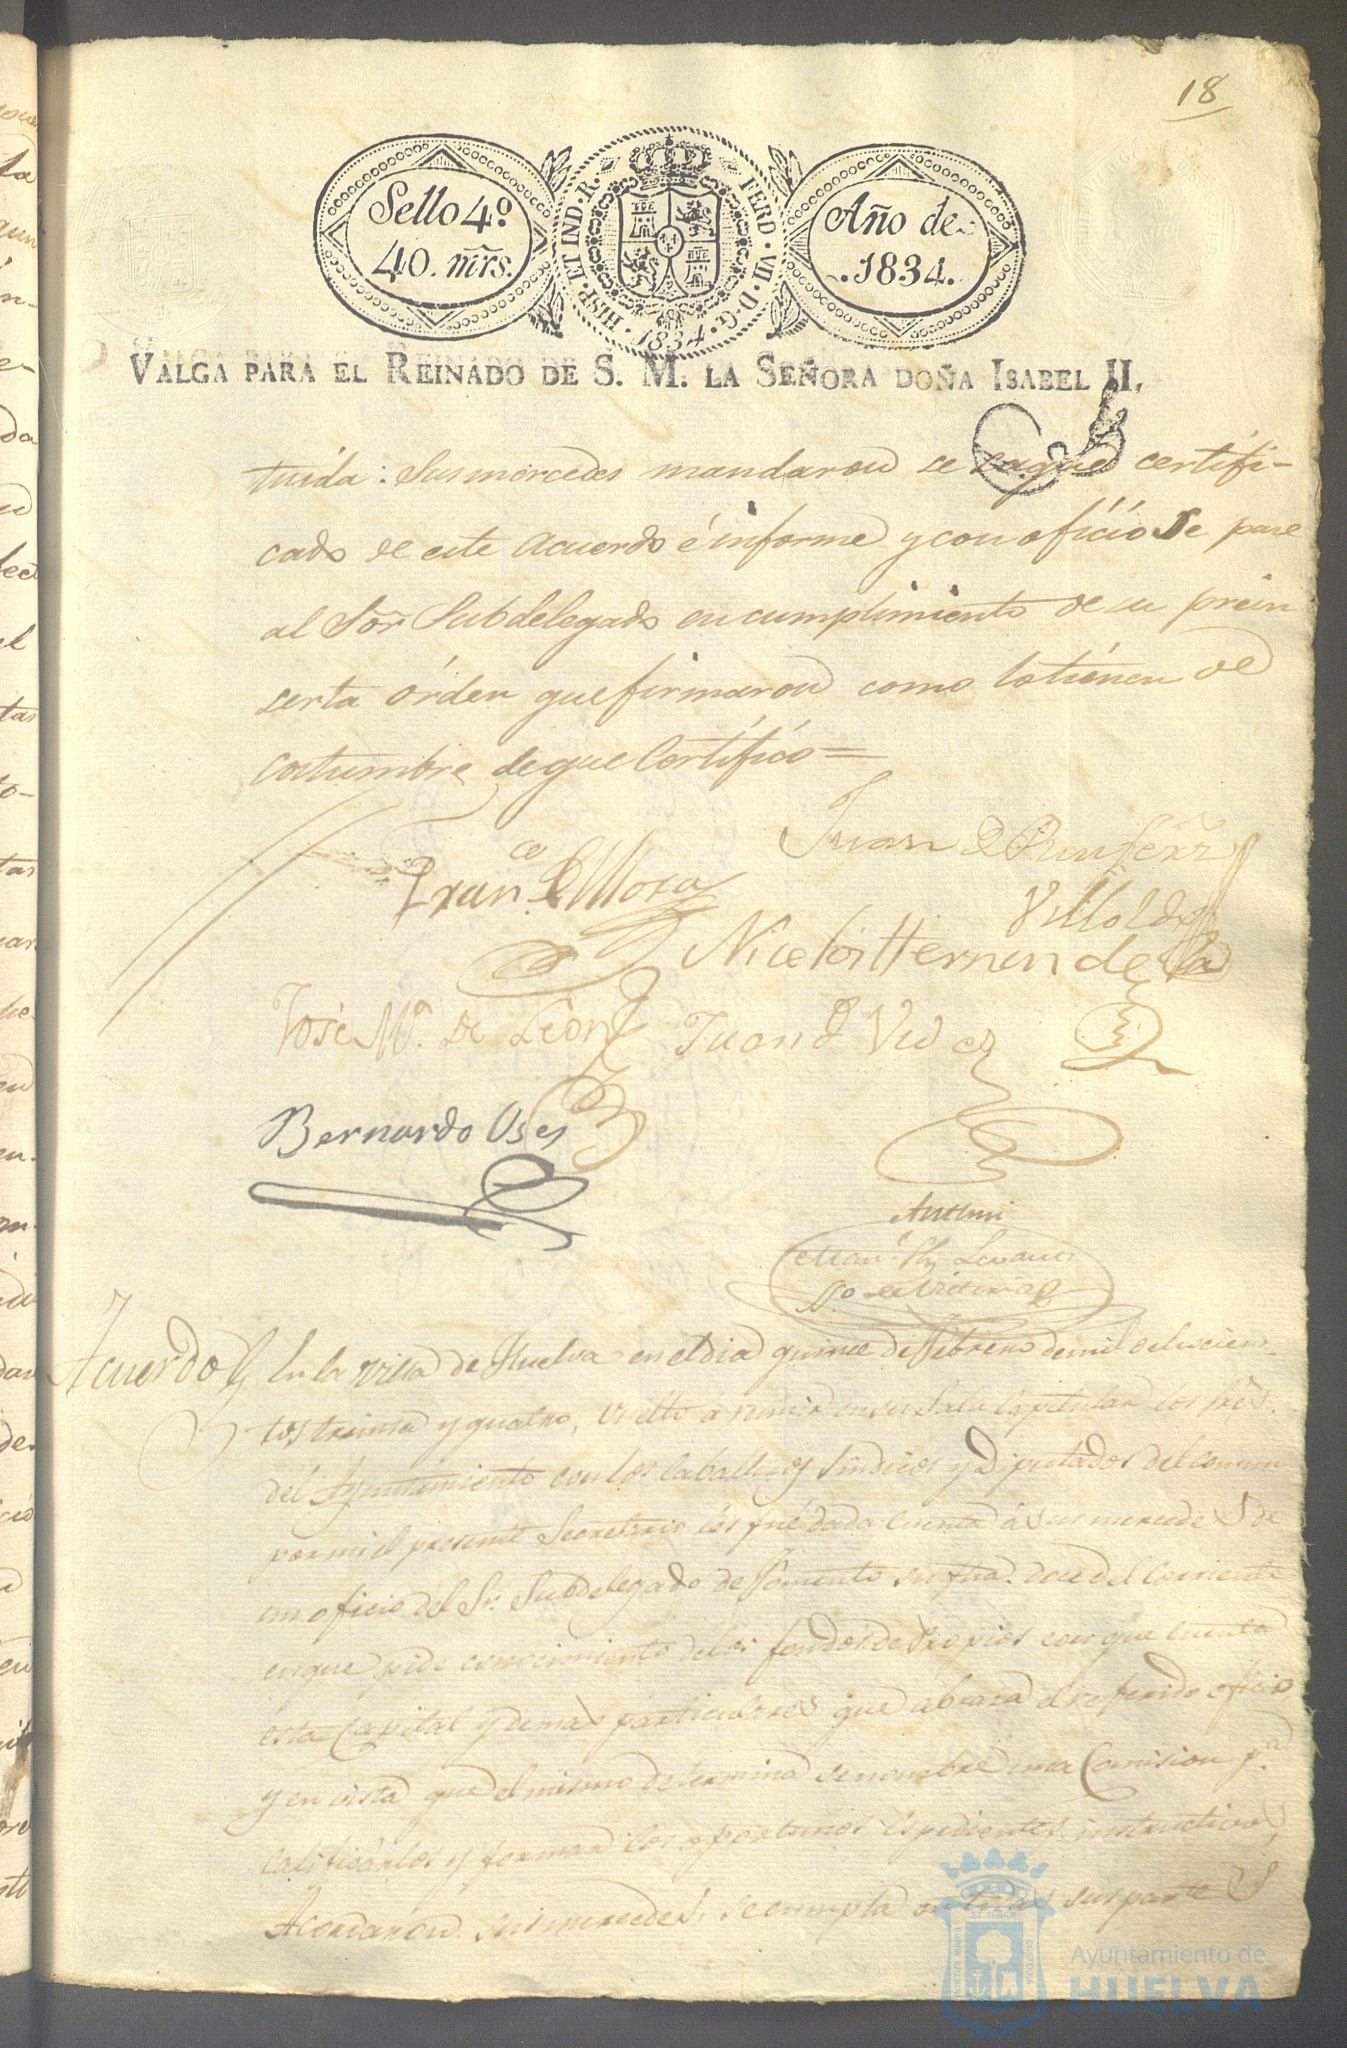 18
Sello 4º
40. mrs.
HISP. ET IND. R.
FERD. VII. D. G.
1834
Año de
1834.
VALGA PARA EL REINADO DE S. M. LA SEÑORA DOÑA ISABEL II.
tuida: Susmercedes mandaron se saque certifi-
cado de este Acuerdo é informe y con oficio se pase
al Sor Subdelegado en cumplimiento de su prein
serta órden que firmaron como lo tienen de
costumbre de que Certífico=
Juan
Franco. de Mora
Villoldo
Nicolás Hernandez
José Mª. de León
Juan d Vides
Bernardo Uses
Antemi
Acuerdo En la Villa de Huelva en el dia quince de Febrero de mil ochocien-
tos treinta y quatro, vuelto a reunir en su Sala Capitular los Sres.
del Ayuntamiento con los Caballeros Sindicos y Diputados del comun
por mi el presente Secretario les fué dada cuenta á sus mercedes de
un oficio del Sr. Subdelegado de Fomento su fha. doce del corriente
en que pide conocimiento de los fondos de Propios con que cuenta
esta Capital y demas particulares que abraza el referido oficio
y en vista que el mismo determina se nombre una Comision pª
calificarlos y formar los oportunos espedientes instructivos
Acordaron sus mercedes, se cumpla en todas sus partes
Ayuntamiento de
HUELVA